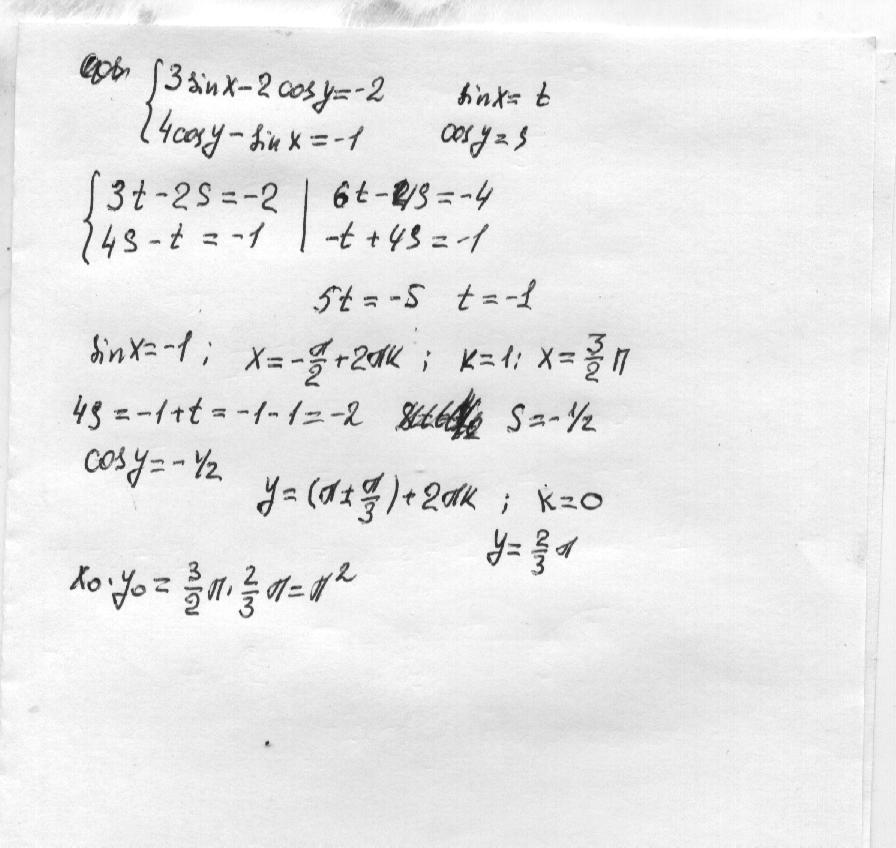 {3 sin x - 2 cos y = -2 sin x = t
{4 cos y - sin x = -1 cos y = s
{3t - 2s = -2 | 6t - 4s = -4
{4s - t = -1 | -t + 4s = -1
5t = -5 t = -1
sin x = -1 ; x = -π/2 + 2πk ; k = 1 : x = 3/2 π
4s = -1 + t = -1 - 1 = -2 s = -1/2
cos y = -1/2
y = (π ± π/3) + 2πk ; k = 0
y = 2/3 π
x₀ · y₀ = 3/2 π · 2/3 π = π²